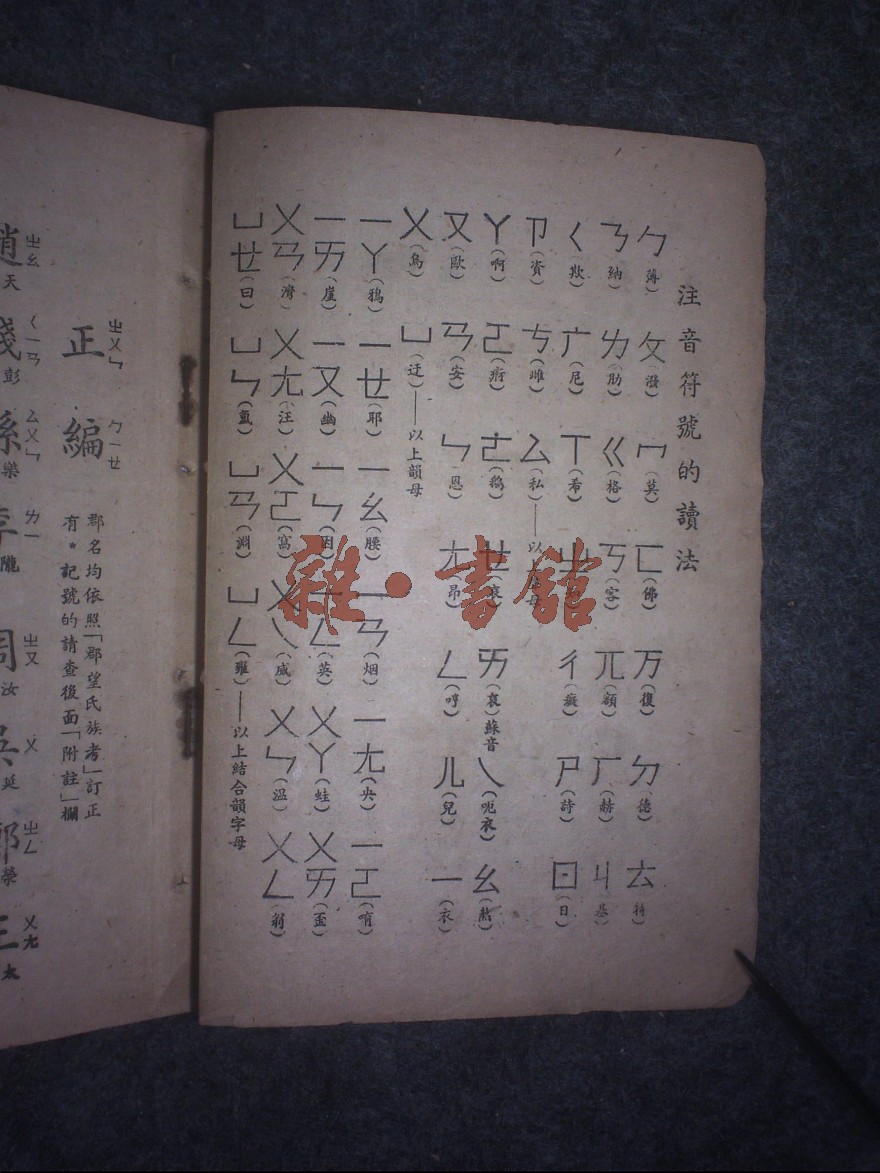 注音符號的讀法
ㄅ(薄) ㄆ(潑) ㄇ(莫) ㄈ(佛) 万(復) ㄉ(德) ㄊ(特)
ㄋ(納) ㄌ(肋) ㄍ(格) ㄎ(客) ㄫ(額) ㄏ(赫) ㄐ(基)
ㄑ(欺) ㄬ(尼) ㄒ(希) ㄓ ㄔ(癡) ㄕ(詩) ㄖ(日)
ㄗ(資) ㄘ(雌) ㄙ(私)——以 母
ㄚ(啊) ㄛ(痾) ㄜ(鵝) ㄝ ㄞ(哀)蘇音 ㄟ(呃衣) ㄠ(熬)
ㄡ(歐) ㄢ(安) ㄣ(恩) ㄤ(昂) ㄥ(哼) ㄦ(兒) ㄧ(衣)
ㄨ(烏) ㄩ(迂)——以上韻母
ㄧㄚ(鴉) ㄧㄝ(耶) ㄧㄠ(腰) ㄧㄢ(烟) ㄧㄤ(央) ㄧㄛ(唷)
ㄧㄞ(崖) ㄧㄡ(幽) ㄧㄣ(因) ㄧㄥ(英) ㄨㄚ(蛙) ㄨㄞ(歪)
ㄨㄢ(灣) ㄨㄤ(汪) ㄨㄛ(窩) ㄨㄟ(威) ㄨㄣ(溫) ㄨㄥ(翁)
ㄩㄝ(曰) ㄩㄣ(氳) ㄩㄢ(淵) ㄩㄥ(雍)——以上結合韻字母
雜·書館
ㄓㄨㄣ ㄅㄧㄝ
正編
郡名均依照「郡望氏族考」訂正
有*記號的請查後面「附註」欄
ㄓㄠ ㄑㄧㄢ ㄙㄨㄣ ㄌㄧ ㄓㄡ ㄨ ㄓㄥ ㄨㄤ
趙錢孫李周吳鄭王
天 彭 樂 隴 汝 延 滎 太